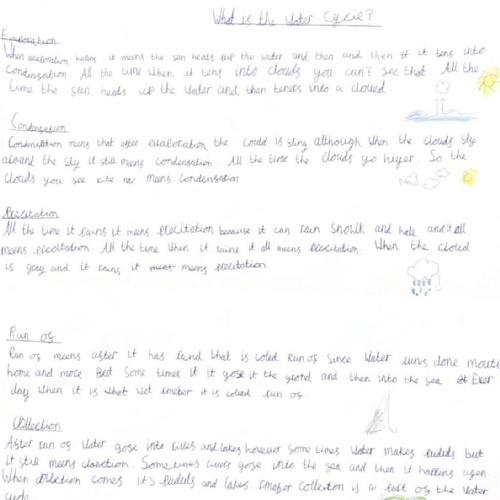 What is the Water Cycle?
Evaporation
When evaporation happens it means the sun heats up the water and then and then it it tens into
Condensation. All the time when it tens into clouds you can't see that. All the
time the sun heats up the water and then teners into a cloud.
Condensation
Condensation means that after evaporation the could is sling although when the clouds sly
around the sky it still means condensation. All the time the clouds go higer. So the
clouds you see rite now means condensation
Precitation
All the time it rains it means precitation because it can rain and hale and it all
means precitation. All the time when it raine it all means precitation. When the cloud
is gray and it rains it means precitation.
Run os
Run os means aster it has raind that is coled Run os since water runs done
home and more. But some times it it gose it the grond and then into the sea. Ever
day when it is it is coled run os.
Collection
Aster run os water gose into and lakes however some times water makes puduls but
it still means Some times gose into the sea and then it happens agen.
When comes it's puduls and lakes collection is a part of the water
cycle.